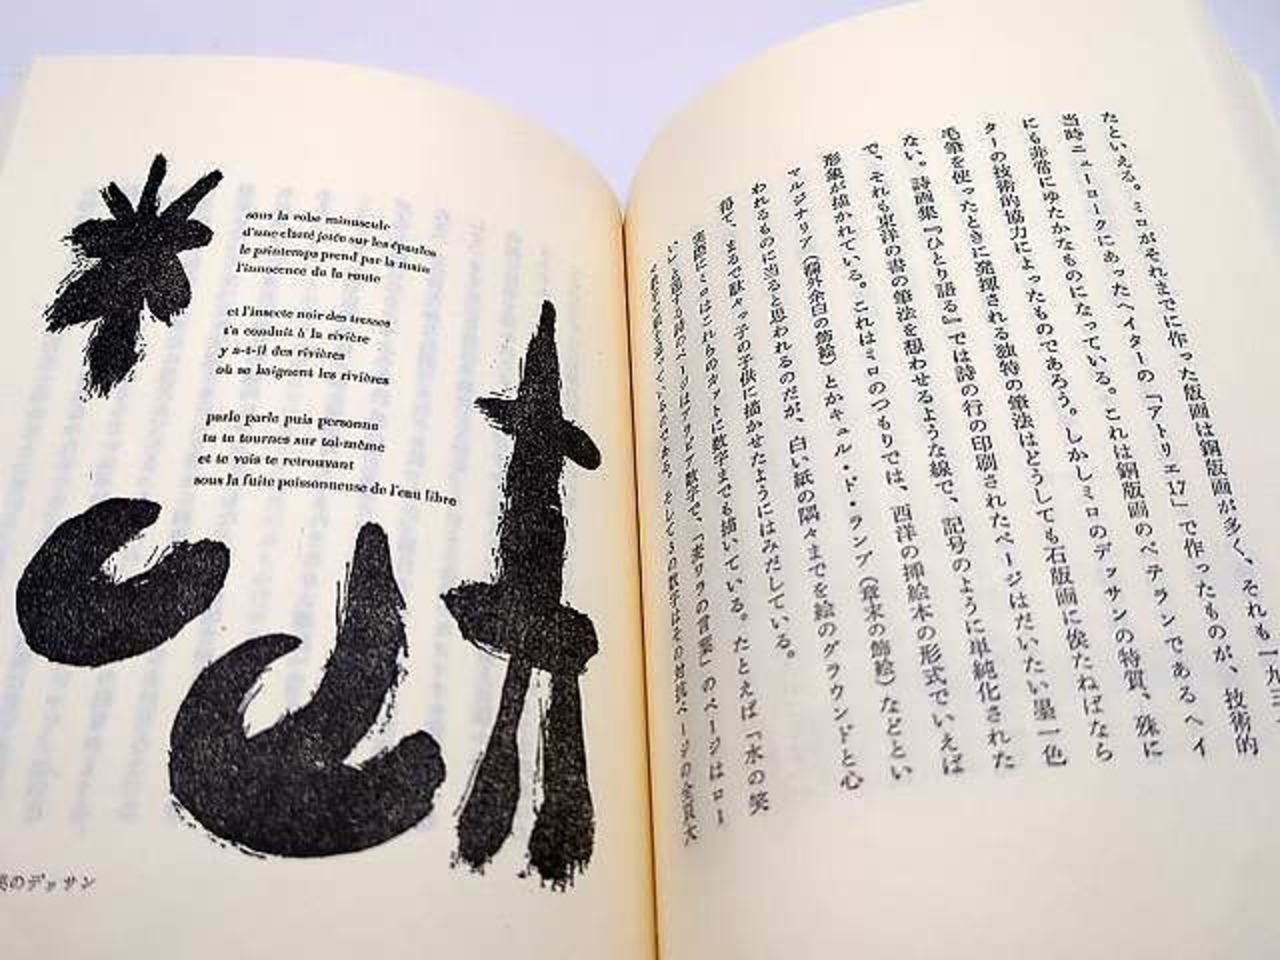 sous la robe minuscule
d'une clarté jetée sur les épaules
le printemps prend par la main
l'innocence de la route
et l'insecte noir des tresses
t'a conduit à la rivière
y a-t-il des rivières
où se baignent les rivières
parle parle puis personne
tu te tournes sur toi-même
et te vois te retrouvant
sous la fuite poissonneuse de l'eau libre
のデッサン
たといえる。ミロがそれまでに作った版画は銅版画が多く、それも一九三
当時ニューヨークにあったヘイターの「アトリエ17」で作ったものが、技術的
にも非常にゆたかなものになっている。これは銅版画のベテランであるヘイ
ターの技術的協力によったものであろう。しかしミロのデッサンの特質、殊に
毛筆を使ったときに発揮される独特の筆法はどうしても石版画に俟たねばなら
ない。詩画集『ひとり語る』では詩の行の印刷されたページはだいたい墨一色
で、それも東洋の書の筆法を想わせるような線で、記号のように単純化された
形象が描かれている。これはミロのつもりでは、西洋の挿絵本の形式でいえば
マルジナリア（欄外余白の飾絵）とかキュル・ド・ランプ（章末の飾絵）などとい
われるものに当ると思われるのだが、白い紙の隅々までを絵のグラウンドと心
得て、まるで駄々っ子の子供に描かせたようにはみだしている。
実際にミロはこれらのカットに数字までも描いている。たとえば「水の笑
い」と題する詩のページはアラビア数字で、「 の言葉」のページはロー